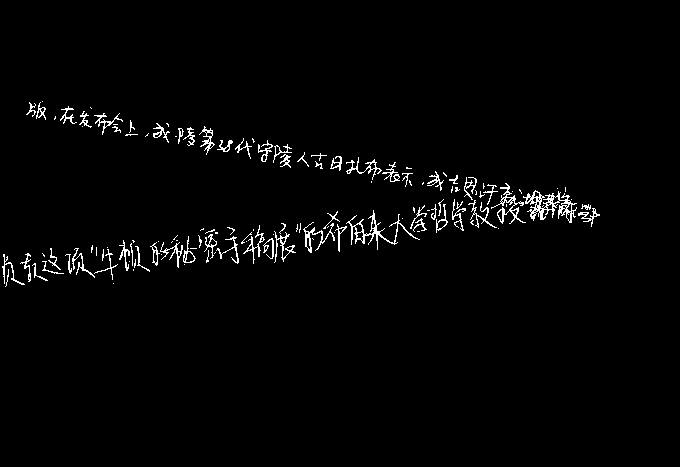 版,在发布会上,成陵第38代守陵人古日扎布表示,成吉思汗
负责这项“牛顿的秘密手稿展”的希伯来大学哲学教授